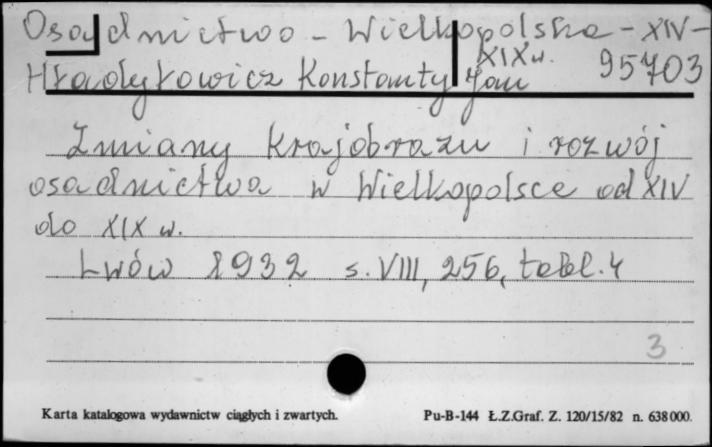 Osadnictwo - Wielkopolska - XIV-
XIX w.
Hładyłowicz Konstanty Jan 95703
Zmiany krajobrazu i rozwój
osadnictwa w Wielkopolsce od XIV
do XIX w.
Lwów 1932 s. VIII, 256, tabl. 4
3
Karta katalogowa wydawnictw ciągłych i zwartych. Pu-B-144 Ł.Z.Graf. Z. 120/15/82 n. 638000.